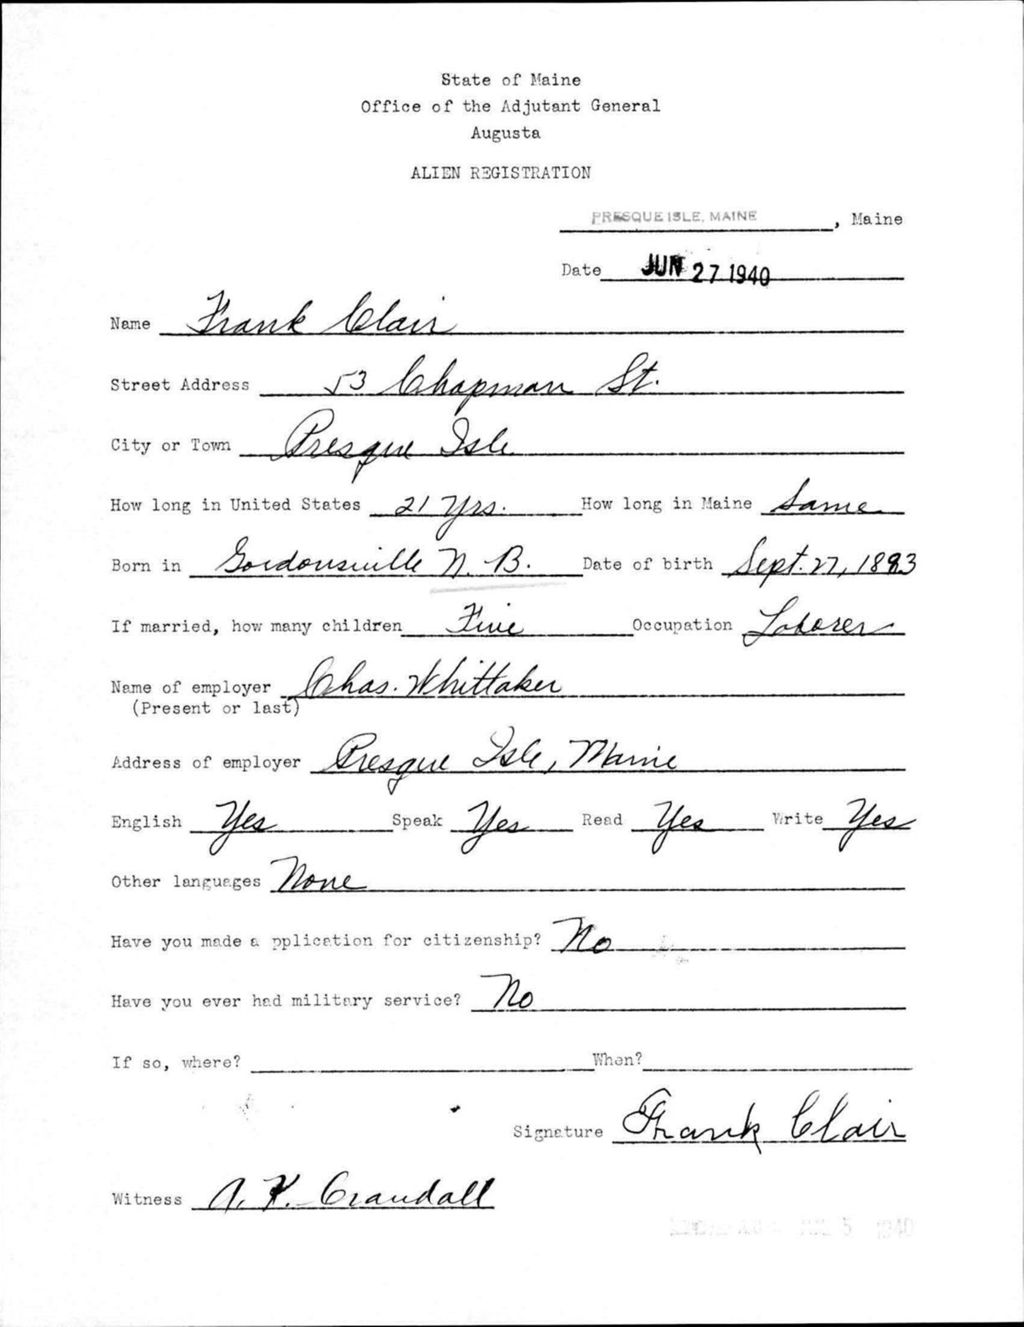 State of Maine
Office of the Adjutant General
Augusta
ALIEN REGISTRATION
PRESQUE ISLE, MAINE, Maine
Date JUN 27 1940
Name Frank Clair
Street Address 53 Chapman St.
City or Town Presque Isle
How long in United States 21 Yrs. How long in Maine Same
Born in Gordonsville N. B. Date of birth Sept. 27, 1883
If married, how many children Five Occupation Laborer
Name of employer Chas. Whittaker
(Present or last)
Address of employer Presque Isle, Maine
English Yes Speak Yes Read Yes Write Yes
Other languages None
Have you made a pplication for citizenship? No
Have you ever had military service? No
If so, where? When?
Signature Frank Clair
Witness Crandall
1940